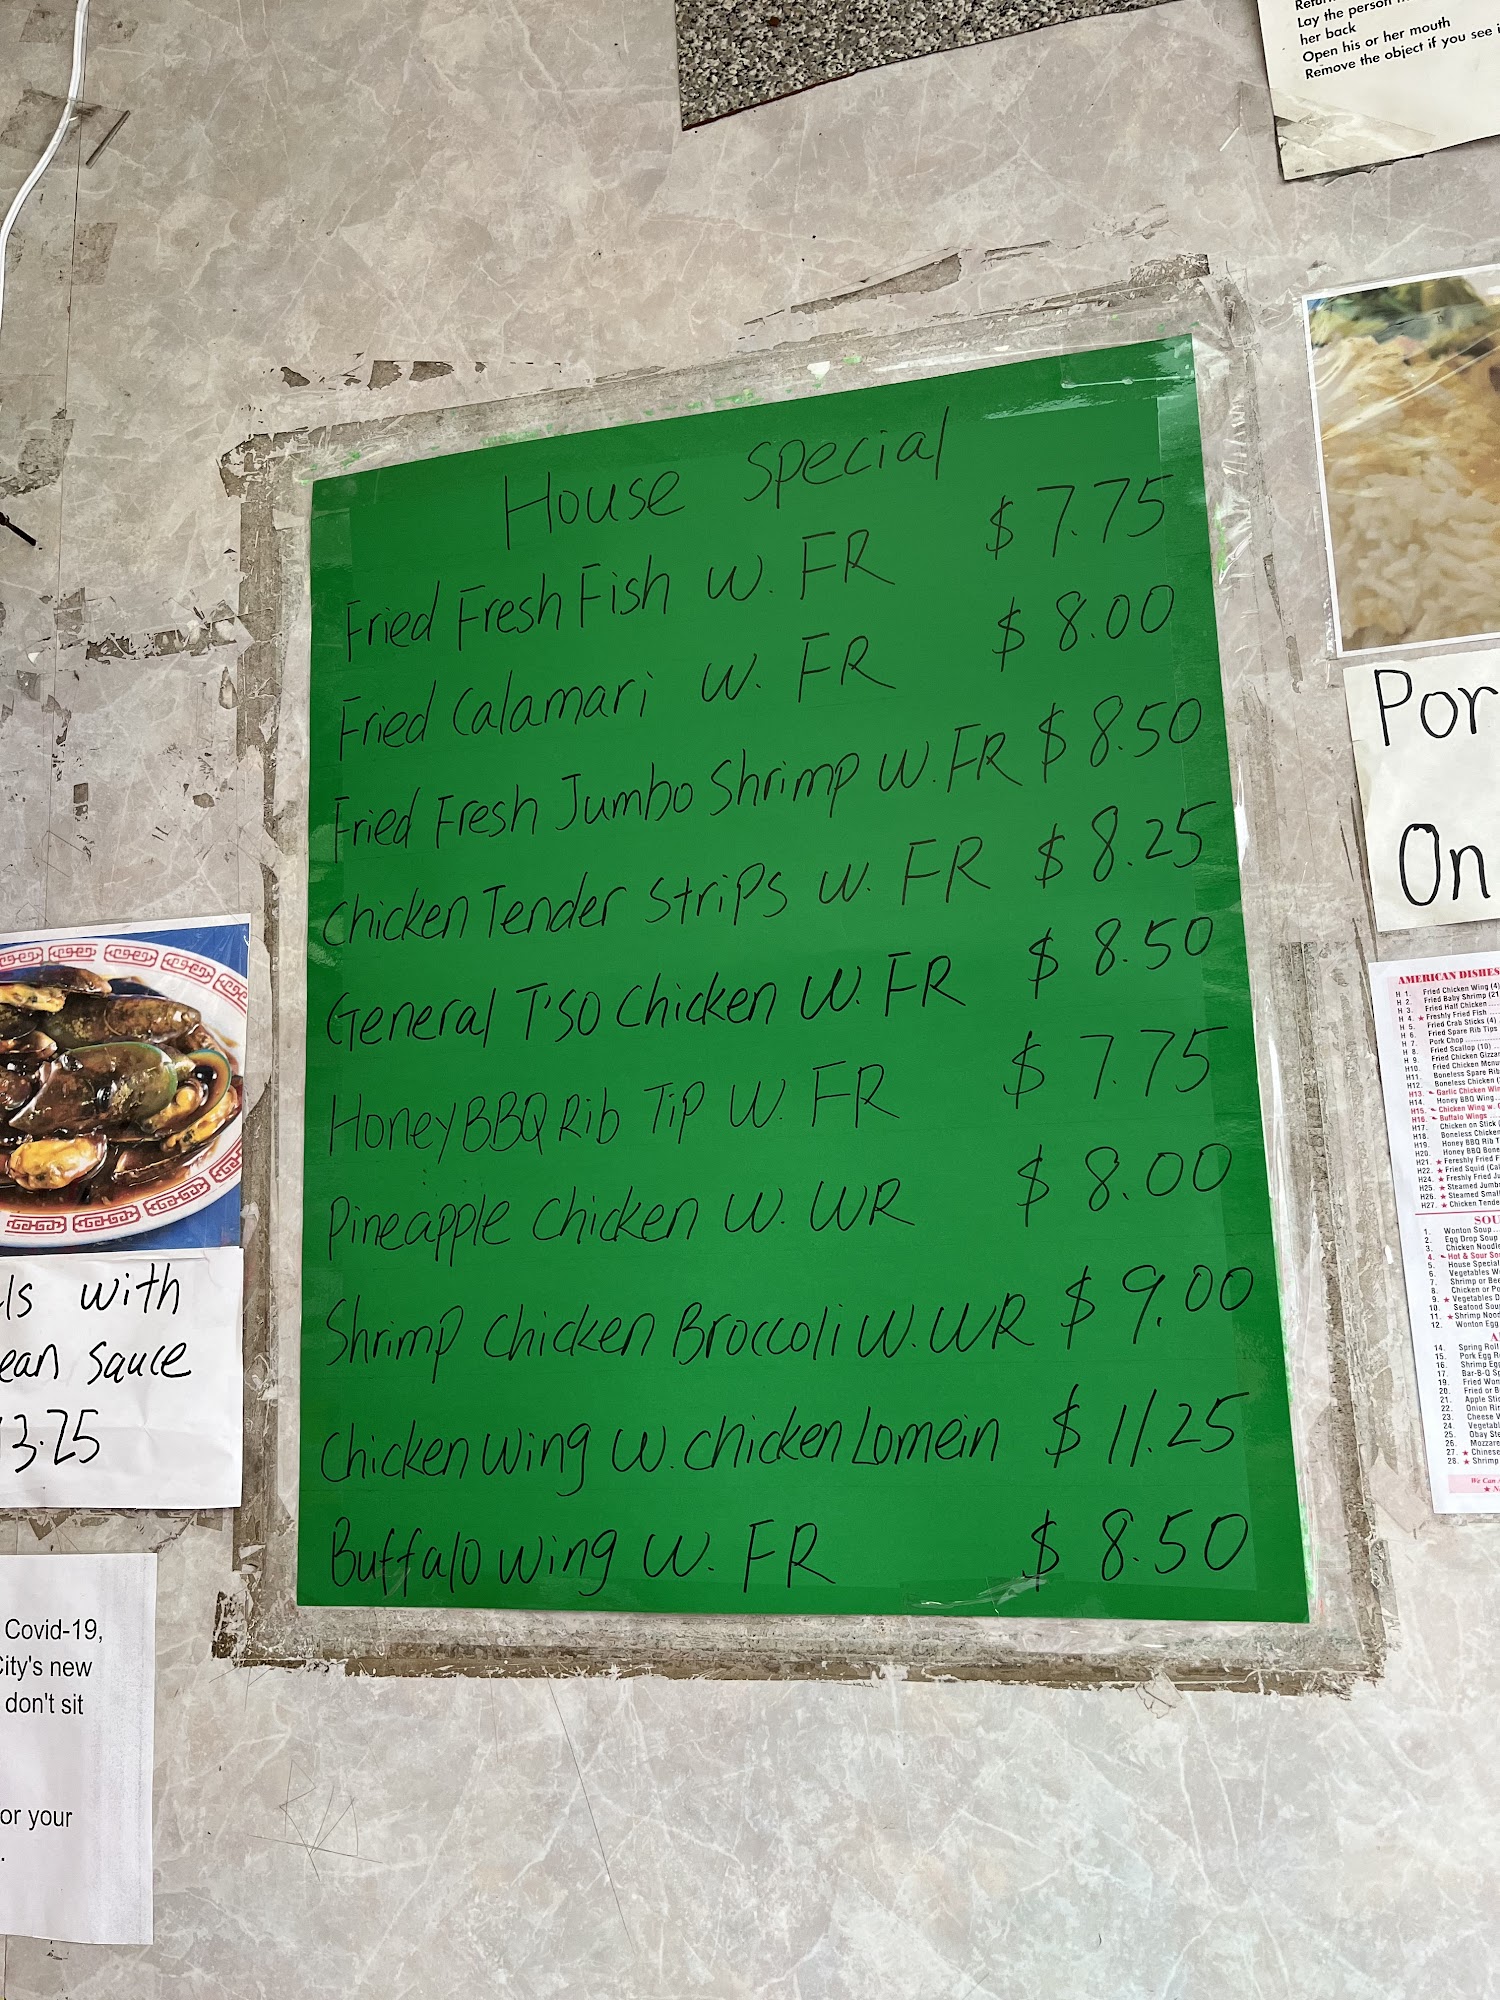 Lay the person
her back
Open his or her mouth
Remove the object if you see
House Special
Fried Fresh Fish W. FR $7.75
Fried Calamari W. FR $8.00
Fried Fresh Jumbo Shrimp W. FR $8.50
Chicken Tender Strips W. FR $8.25
General T'SO Chicken W. FR $8.50
Honey BBQ Rib Tip W. FR $7.75
Pineapple Chicken W. WR $8.00
Shrimp Chicken Broccoli W. WR $9.00
Chicken Wing W. Chicken Lomein $11.25
Buffalo Wing W. FR $8.50
with
sauce
3.25
Covid-19,
City's new
don't sit
or your
On
AMERICAN DISHES
H 1. Fried Chicken Wing (4)
H 2. Fried Baby Shrimp (21
H 3. Fried Half Chicken
H 4. ★ Freshly Fried Fish
H 5. Fried Crab Sticks (4)
H 6. Fried Spare Rib Tips
H 7. Pork Chop
H 8. Fried Scallop (10)
H 9. Fried Chicken
H10. Fried Chicken
H11. Boneless Spare Rib
H12. Boneless Chicken
H13. Garlic Chicken
H14. Honey BBQ Wing
H15. Chicken Wing w.
H16. Buffalo Wings
H17. Chicken on Stick
H18. Boneless Chicken
H19. Honey BBQ Rib
H20. Honey BBQ
H21. ★ Fereshly Fried
H22. ★ Fried Squid
H24. ★ Freshly Fried
H25. ★ Steamed
H26. ★ Steamed
H27. ★ Chicken
1. Wonton Soup
2. Egg Drop Soup
3. Chicken
4. Hot & Sour
5. House Special
6. Vegetables
7. Shrimp or
8. Chicken or
9. ★ Vegetables
10. Seafood
11. ★ Shrimp
12. Wonton Egg
14. Spring Roll
15. Pork Egg
16. Shrimp
17. Bar-B-Q
19. Fried
20. Fried or
21. Apple
22. Onion
23. Cheese
24.
25. Obay
26.
27. ★
28. ★ Shrimp
We Can